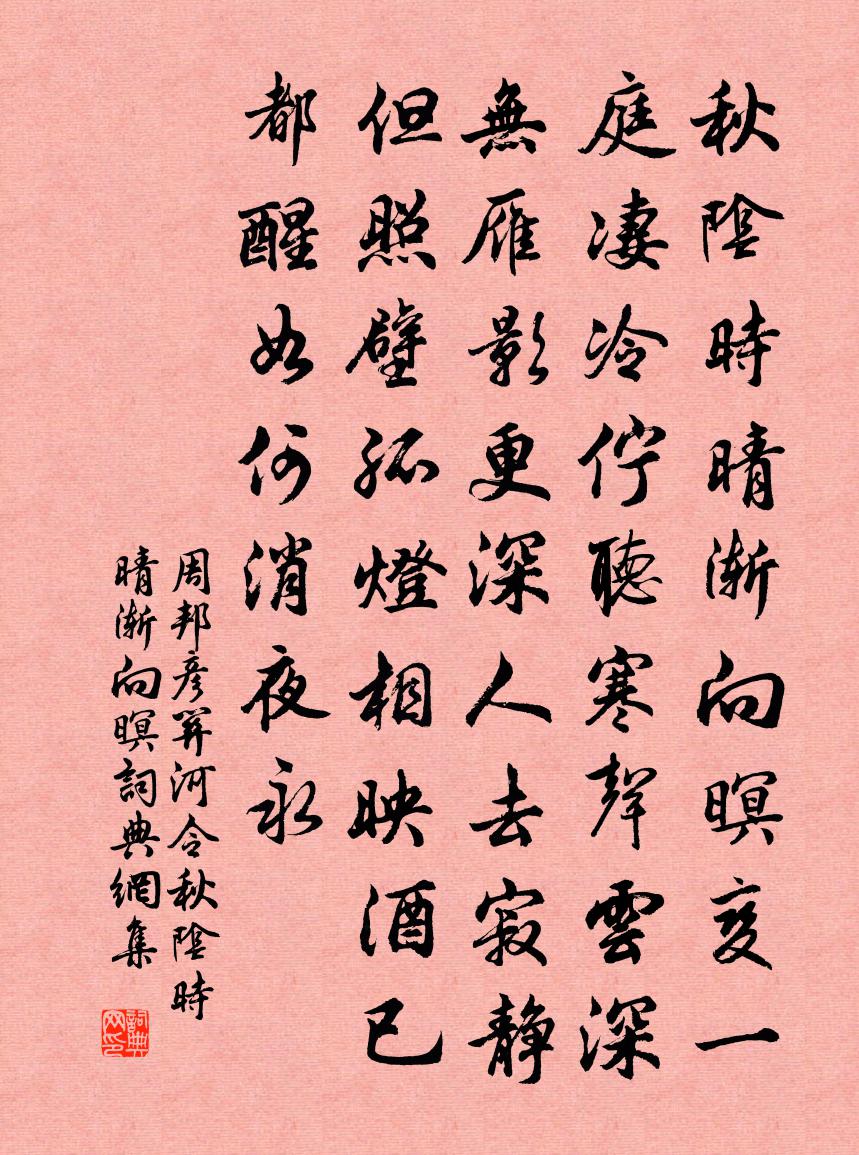 秋陰時晴漸向暝變一
庭凄冷佇聽寒聲雲深
無雁影更深人去寂静
但照壁孤燈相映酒已
都醒如何消夜永
周邦彦關河令秋陰時
晴漸向暝詞典網集
詞典网印